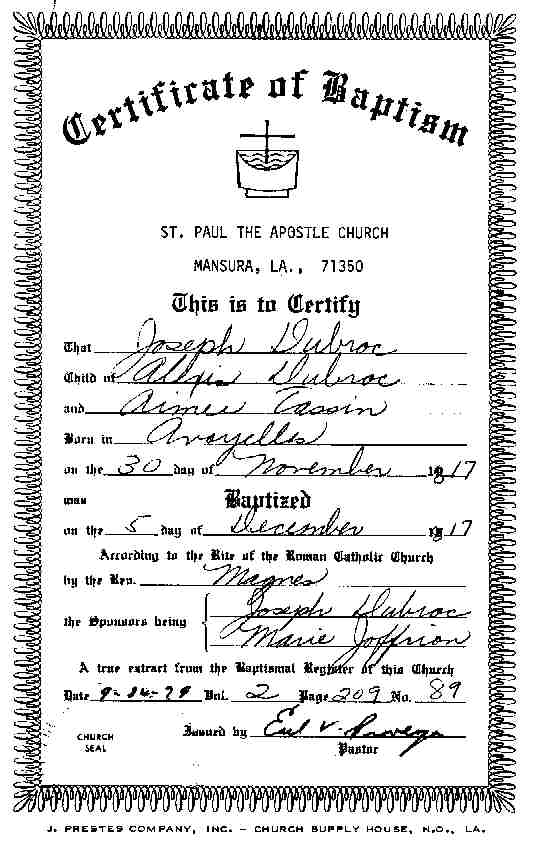 Certificate of Baptism
ST. PAUL THE APOSTLE CHURCH
MANSURA, LA., 71350
This is to Certify
That Joseph Dubroc
Child of Alexis Dubroc
and Aimee Tassin
Born in Avoyelles
on the 30 day of November 1817
was Baptized
on the 5 day of December 1817
According to the Rite of the Roman Catholic Church
by the Rev. Magnes
the Sponsors being Joseph Dubroc
Marie Joffrion
A true extract from the Baptismal Register of this Church
Date Vol. 2 Page 209 No. 89
Issued by
Pastor
CHURCH
SEAL
J. PRESTES COMPANY, INC. – CHURCH SUPPLY HOUSE, N.O., LA.